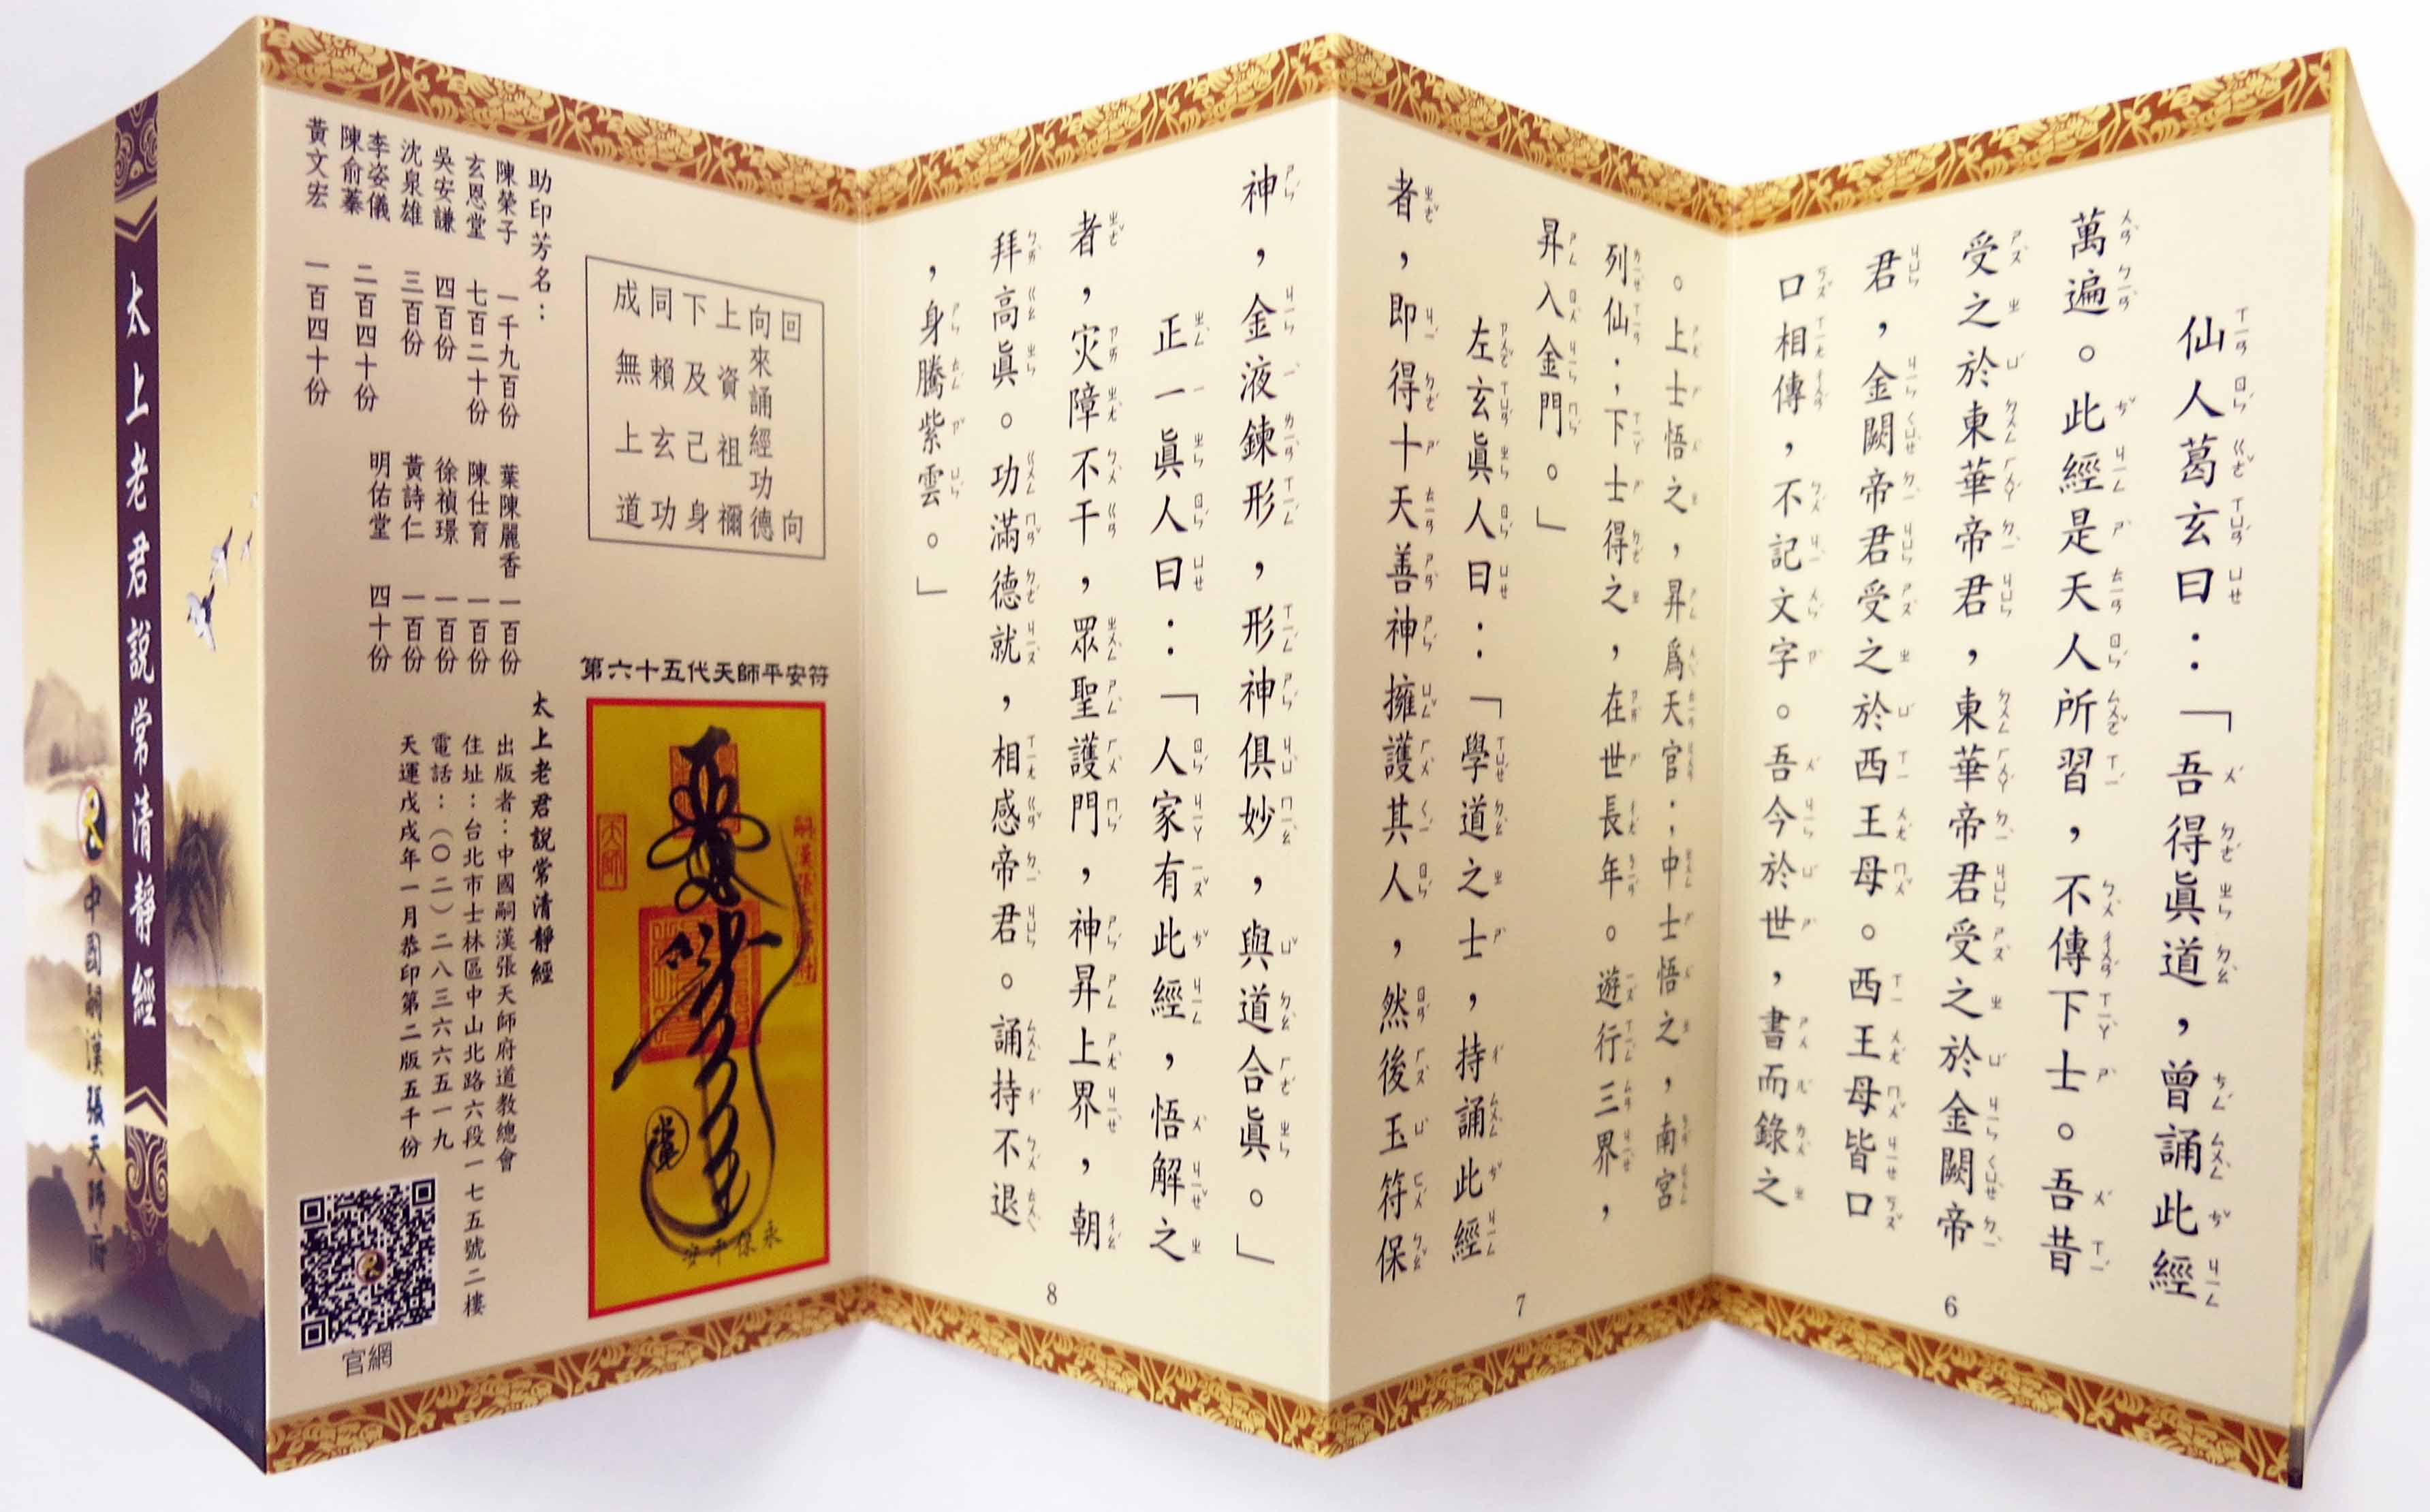 仙人葛玄曰：「吾得眞道，曾誦此經
萬遍。此經是天人所習，不傳下士。吾昔
受之於東華帝君，東華帝君受之於金闕帝
君，金闕帝君受之於西王母。西王母皆口
口相傳，不記文字。吾今於世，書而錄之
。上士悟之，昇爲天官；中士悟之，南宮
列仙；下士得之，在世長年。遊行三界，
昇入金門。」
左玄眞人曰：「學道之士，持誦此經
者，即得十天善神擁護其人，然後玉符保
神，金液鍊形，形神俱妙，與道合眞。」
正一眞人曰：「人家有此經，悟解之
者，灾障不干，眾聖護門，神昇上界，朝
拜高眞。功滿德就，相感帝君。誦持不退
，身騰紫雲。」
6
7
8
回向
向來誦經功德
上資祖禰
下及己身
同賴玄功
成無上道
第六十五代天師平安符
天師
永保平安
助印芳名：
陳榮子 一千九百份 葉陳麗香 一百份
玄恩堂 七百二十份 陳仕育 一百份
吳安謙 四百份 徐禎璟 一百份
沈泉雄 三百份 黃詩仁 一百份
李姿儀
陳俞蓁 二百四十份 明佑堂 四十份
黃文宏 一百四十份
太上老君說常清靜經
出版者：中國嗣漢張天師府道教總會
住址：台北市士林區中山北路六段一七五號二樓
電話：（〇二）二八三六六五一九
天運戊戌年一月恭印第二版五千份
官網
太上老君說常清靜經
中國嗣漢張天師府